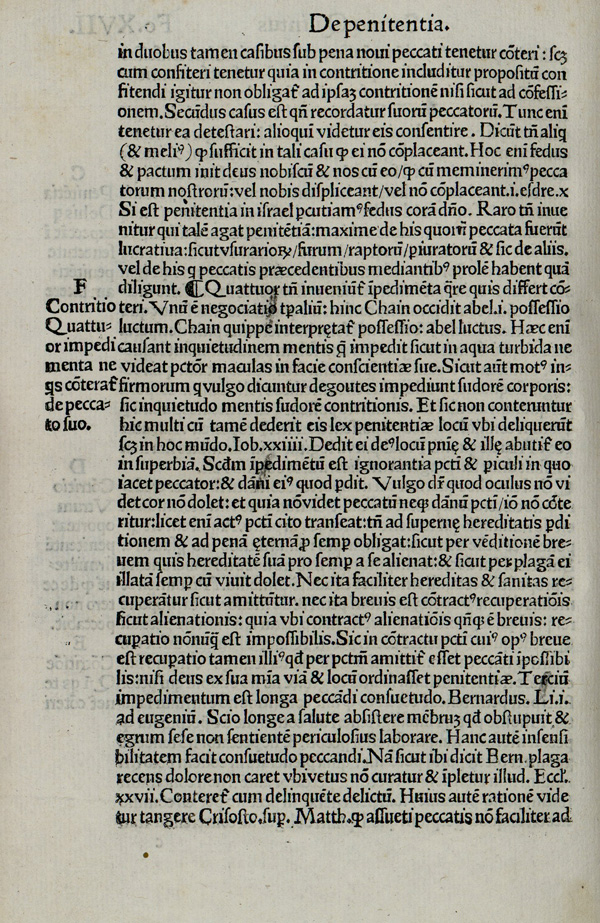 De penitentia.
in duobus tamen casibus sub pena noui peccati tenetur cōteri : scꝫ
cum confiteri tenetur quia in contritione includitur propositū con
fitendi igitur non obligat̄ ad ipsaꝫ contritionē nisi sicut ad cōfessi-
onem. Secūdus casus est qñ recordatur suorū peccatorū. Tunc eni᷑
tenetur ea detestari: alioqui᷑ videtur eis consentire. Dicūt tñ aliq
(& meliꝰ) ꝙ sufficit in tali casu ꝙ ei nō cōplaceant. Hoc eni᷑ fedus
& pactum init deus nobiscū & nos cū eo/ꝙ cū meminerimꝰ pecca
torum nostrorū: vel nobis displiceant/vel nō cōplaceant.i.esdre.x
Si est penitentia in israel ꝑcutiamꝰ fedus corā dn̄o. Raro tñ inue
nitur qui talē agat penitētiā: maxime de his quorū peccata fuerūt
lucratiua: sicut vsurarioꝝ/furum/raptorū/ꝑiuratorū & sic de aliis.
vel de his q peccatis præcedentibus mediantibꝰ prolē habent quā
diligunt. ¶ Quattuor tñ inueniūt᷑ īpedimēta qͣre quis differt cō-
teri. Vnū ē negociatio tp̄aliū: hinc Chain occidit abel.i. possessio
luctum. Chain quippe interpręta᷑t possessio: abel luctus. Hæc eni᷑
causant inquietudinem mentis q̄ impedit sicut in aqua turbida ne
ne videat pctōr maculas in facie conscientiæ sue. Sicut aūt motꝰ in-
firmorum q vulgo dicuntur degoutes impediunt sudorē corporis:
sic inquietudo mentis sudorē contritionis. Et sic non conteruntur
hic multi cū tamē dederit eis lex penitentiæ locū vbi deliquerūt
scꝫ in hoc mūdo. Iob.xxiiii. Dedit ei deꝰ locū pnię & illę abutit᷑ eo
in superbiā. Scdm īpedimētū est ignorantia pcti & piculi in quo
iacet peccator: & dāni eiꝰ quod ꝑdit. Vulgo dr̄ quod oculus nō vi
det cor nō dolet: et quia nō videt peccatū neqꝫ dānū pcti/iō nō cōte
ritur: licet eni᷑ actꝰ pcti cito transeat: tñ ad supernę hereditatis ꝑdi
tionem & ad penā ęternā ꝓ semꝑ obligat: sicut per vēditionē bre-
uem quis hereditatē suā pro semꝑ a se alienat: & sicut per plagā ei
illatā semꝑ cū viuit dolet. Nec ita faciliter hereditas & sanitas re-
cuperātur sicut amittūtur. nec ita breuis est cōtractꝰ recuperatiōis
sicut alienationis: quia vbi contractꝰ alienatiōis qñqꝫ ē breuis: re-
cupatio nōnūq̄ est impossibilis. Sic in cōtractu pcti cuiꝰ opꝰ breue
est recupatio tamen illiꝰ qd̄ per pctm̄ amittit᷑ esset peccāti īpossibi
lis: nisi deus ex sua mīa viā & locū ordinasset penitentiæ. Terciū
impedimentum est longa peccādi consuetudo. Bernardus. Li.i.
ad eugeniū. Scio longe a salute absistere mēbruꝫ qd̄ obstupuit &
egrum sese non sentientē periculosius laborare. Hanc autē insensi
bilitatem facit consuetudo peccandi. Nā sicut ibi dicit Bern. plaga
recens dolore non caret vbi vetus nō curatur & īpletur illud. Eccl̄.
xxvii. Conteret᷑ cum delinquēte delictū. Huius autē rationē vide
tur tangere Crisosto. suꝑ. Matth. ꝙ assueti peccatis nō faciliter ad
F
Contritio
Quattu-
or impedi
menta ne
qs cōterat᷑
de pecca-
to suo.